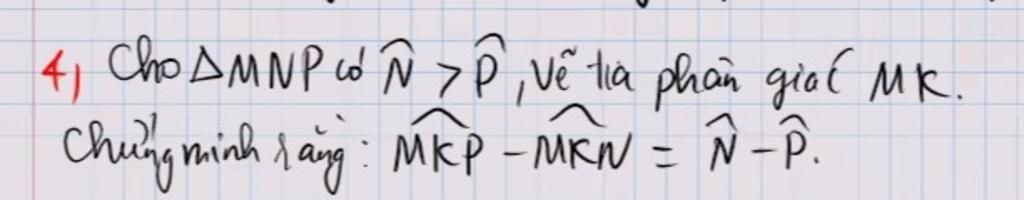 4) Cho △MNP có N̂ > P̂, Vẽ tia phân giác MK.
Chứng minh rằng: M̂K̂P̂ - M̂K̂N̂ = N̂ - P̂.